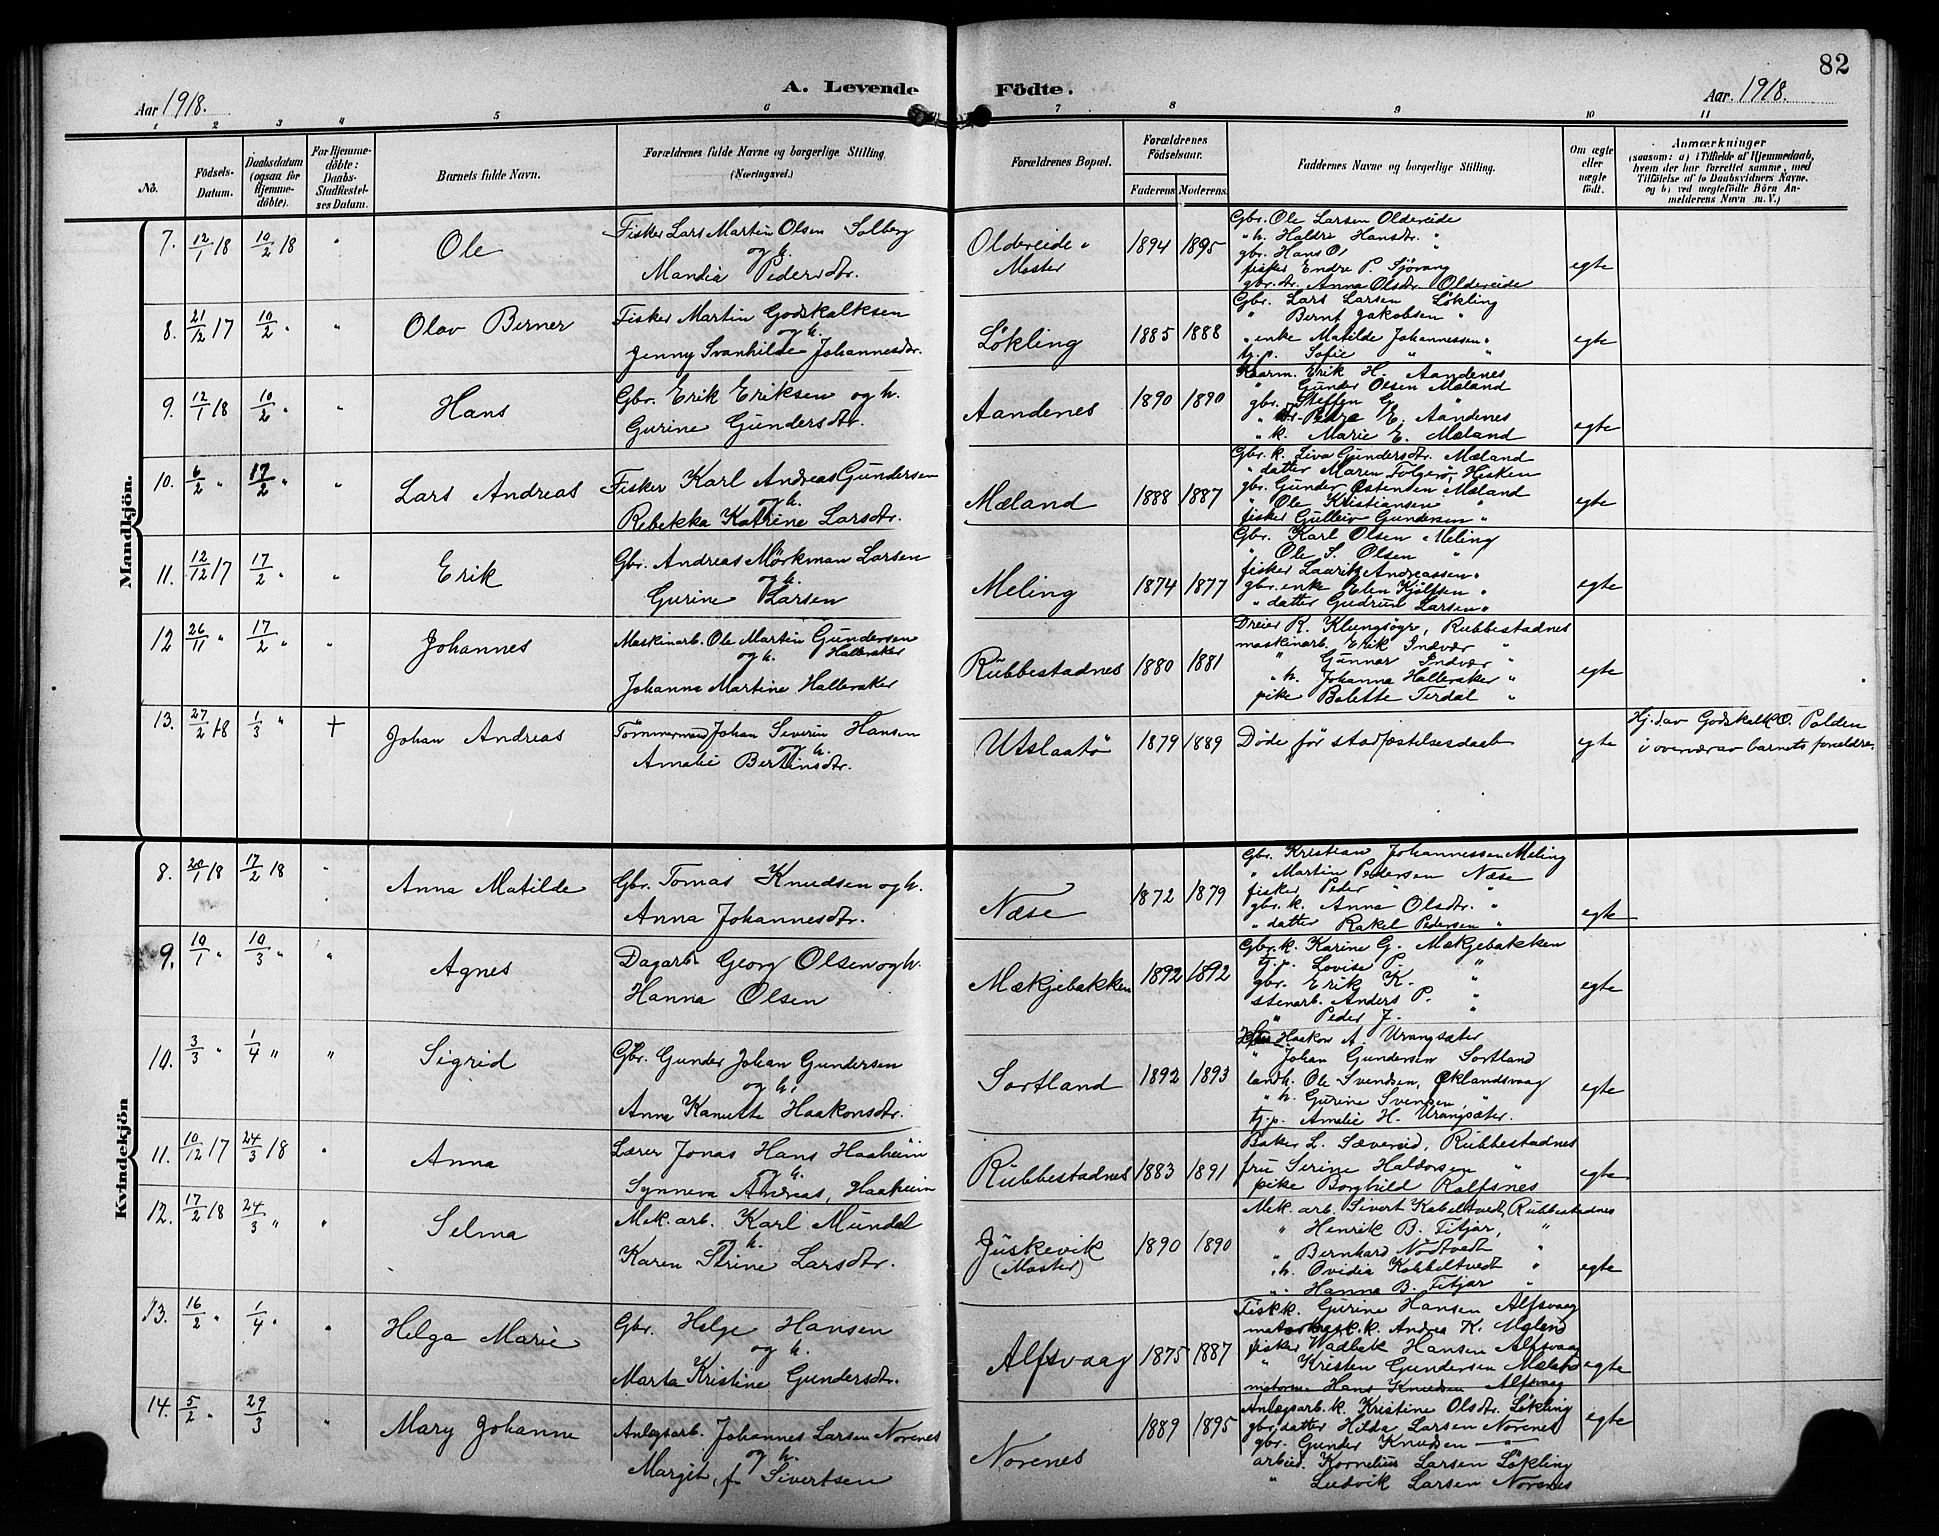 82
A. Levende Födte.
Aar 1918.
Aar. 1918.
1 2 3 4 5 6 7 8 9 10 11
No.
Födsels-Datum.
Daabsdatum (ogsaa for Hjemme-döbte).
For Hjemme-döbte: Daabs-Stadfæstel-ses Datum.
Barnets fulde Navn.
Forældrenes fulde Navne og borgerlige Stilling. (Næringsvei.)
Forældrenes Bopæl.
Forældrenes Födselsaar.
Faderens. Moderens.
Faddernes Navne og borgerlige Stilling.
Om ægte eller uægte födt.
Anmærkninger
(saasom: a) i Tilfælde af Hjemmedaab,
hvem der har forrettet samme, med
Tilföielse af to Daabsvidners Navne,
og b) ved uægtefödte Börn An-
melderens Navn m. V.)
Mandkjön.
7. 12/1 18 10/2 18 " Ole
Fisker Lars Martin Olsen Solberg
og h.
Mandia Pedersdtr.
Oldereide
Moster
1894 1895
Gbr. Ole Larsen Oldereide
" h. Haldri Hansdtr. "
gbr. Hans O
fisker Endre P. Sjövang
gbr. dr. Anna Olsdtr. Oldereide
egte
8. 21/12 17 10/2 " " Olav Berner
Fisker Martin Godskalksen
og h.
Jenny Svanhilde Johannesdtr.
Løkling
1885 1888
Gbr. Lars Larsen Løkling
" Bernt Jakobsen "
" enke Matilde Johannessen "
tj. p. Sofie " "
egte
9. 12/1 18 10/2 " " Hans
Gbr. Erik Eriksen og h.
Gurine Gundersdtr.
Aandenes
1890 1890
Kaarm. Erik H. Aandenes
" Gunder Olsen Mæland
gbr. Steffen G. "
" E. Aandenes
" k. Marie E. Mæland
egte
10. 6/2 " 17/2 " " Lars Andreas
Fisker Karl Andreas Gundersen
og h.
Rebekka Katrine Larsdtr.
Mæland
1888 1887
Gbr. k. Liva Gundersdtr. Mæland
" datter Maren Folgerø, Hisken
gbr. Gunder Østensen Mæland
" Ole Kristiansen "
fisker Gulleiv Gundersen "
egte
11. 12/12 17 17/2 " " Erik
Gbr. Andreas Mörkman Larsen
og h.
Gurine Larsen
Meling
1874 1877
Gbr. Karl Olsen Meling
" Ole S. Olsen "
fisker Lauritz Andreassen "
gbr. enke Elen Kjölfsen "
" datter Gudrun Larsen "
egte
12 26/11 " 17/2 " " Johannes
Maskinarb. Ole Martin Gundersen
og h. Halleraker
Johanna Martine Halleraker
Rubbestadnes
1880 1881
Dreier K. Klungsöyr, Rubbestadnes
maskinarb. Erik Indvær "
" Gunnar Indvær "
" h. Johanna Halleraker "
pike Bolette Tirdal "
egte
13. 27/2 18 1/3 " † Johan Andreas
Tömmermand Johan Severin Hansen
og h.
Amalie Bertinsdtr.
Utslaatö
1879 1889
Døde før stadfæstelsesdaab
egte
Hj. d. av Godskalk O. Polden
i overvær av barnets forældre.
Kvindekjön
8. 20/1 18 17/2 18 " Anna Matilde
Gbr. Tomas Knudsen og h.
Anna Johannesdtr.
Næse
1872 1879
Gbr. Kristian Johannessen Meling
" Martin Pedersen Næse
fisker Peder " "
gbr. k. Anna Olsdtr. "
" datter Rakel Pedersen "
egte
9. 10/1 " 10/3 " " Agnes
Dagarb. Georg Olsen og h.
Hanna Olsen
Mækjebakken
1892 1892
Gbr. k. Karine G. Mækjebakken
tj. p. Lovise P. "
gbr. Erik K. "
stenarb. Anders P. "
" Peder J. "
egte
10. 3/3 " 1/4 " " Sigrid
Gbr. Gunder Johan Gundersen
og h.
Anna Kanutte Haakonsdtr.
Sortland
1892 1893
Haakon A. Urangsæter
" Johan Gundersen Sortland
landh. Ole Svendsen, Eklandsvaag
" h. Gurine Svensen "
tj. p. Amalie H. Urangsæter.
egte
11. 10/12 17 24/3 18 " Anna
Lærer Jonas Hans Haaheim
og h.
Synneva Andreas, Haaheim
Rubbestadnes
1883 1891
Baker L. Sæversid, Rubbestadnes
fru Serine Haldorsen "
pike Borghild Rolfsnes "
egte
12. 17/2 18 24/3 " " Selma
Mek. arb. Karl Mundal
og h.
Karen Strine Larsdtr.
Juskevik
(Moster)
1890 1890
Mek. arb. Sivert Kobeltvedt, Rubbestadnes
" Henrik B. Fitjar, "
" Bernhard Nödtvedt "
" h. Ovidia Kobbeltvedt "
" " Hanna B. Fitjar "
egte
13. 16/2 " 1/4 " " Helga Marie
Gbr. Helge Hansen
og h.
Marta Kristine Gundersdtr.
Alfsvaag
1875 1887
Fisk. k. Gurine Hansen Alfsvaag
k. Andrea K. Mæland
fisker Wadbek Hansen Alfsvaag
" Kristen Gundersen Mæland
Hans Knudsen Alfsvaag
egte
14. 5/2 " 29/3 " Mary Johanne
Anlægsarb. Johannes Larsen Norenes
og h.
Margit, f. Sivertsen
Norenes
1889 1895
Anlægsarb. k. Kristine Olsdtr. Løkling
gbr. datter Hilda Larsen Norenes
gbr. Gunder Knudsen —"—
arbeid. Kornelius Larsen Løkling
" Ludvik Larsen Norenes
egte